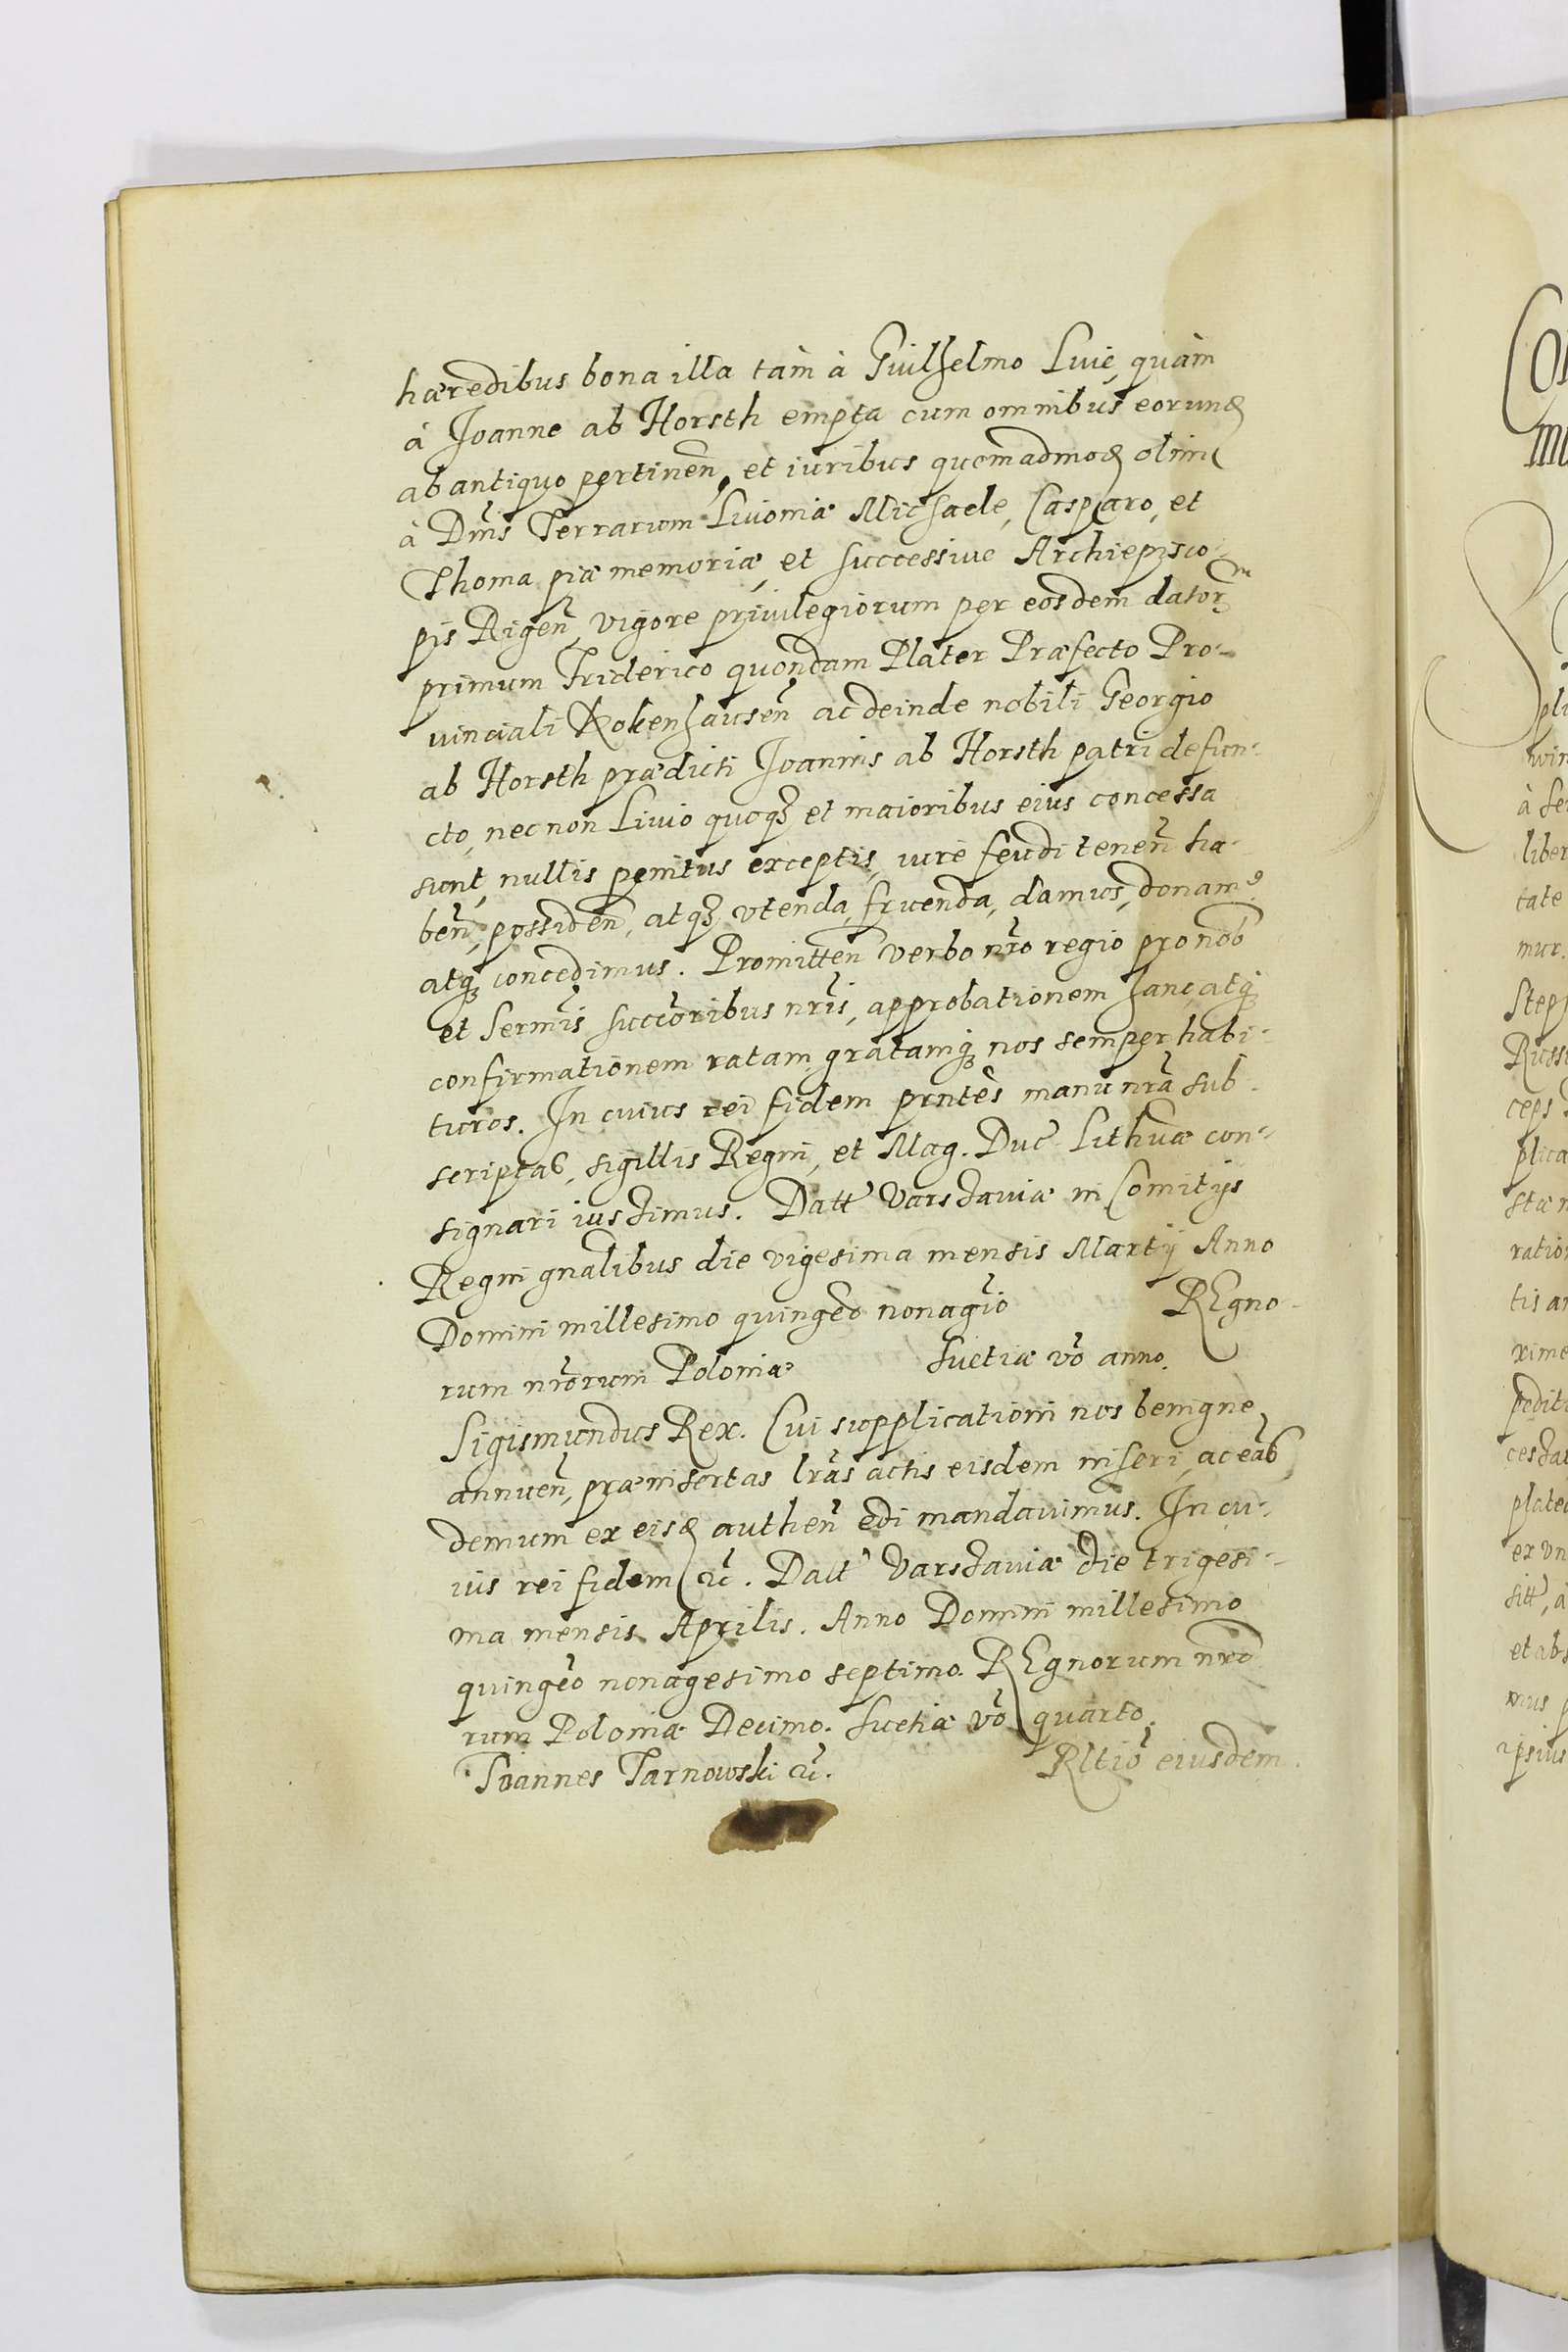 hæredibus bona illa tàm à Guilhelmo Livie, quàm
à Joanne ab Horsth empta cum omnibus eorund
ab antiquo pertineñ, et iuribus quemadmod olim
à Dñis Terrarum Livoniæ Michaele, Casparo, et
Thoma piæ memoriæ, et successive Archiepisco-
pis Rigeñ, vigore privilegiorum per eosdem dator̃
primum Friderico quondam Plater Præfecto Pro-
vinciali Kokenhauseñ ac deinde nobili Georgio
ab Horsth prædicti Joannis ab Horsth patri defun-
cto, nec non Livio quoqȝ et maioribus eius concessa
sunt, nullis penitus exceptis, iure feudi teneñ ha-
beñ, possideñ, atqȝ vtenda, fruenda, damus, donam9
atqȝ concedimus. Promitteñ verbo nr̃o regio pro nob̃
et Sermis̃ succõribus nr̃is, approbationem hanc, atqȝ
confirmationem ratam, gratamqȝ nos semper habi-
turos. In cuius rei fidem pñtes manu nr̃a sub-
scriptas, sigillis Regni, et Mag. Duc̃ Lithuæ con-
signari iussimus. Datt Varssaviæ in Comitijs
Regni gñalibus die vigesima mensis Martij Anno
Domini millesimo quingẽo nonagĩo REgno-
rum nr̃orum Poloniæ Suetiæ võ anno.
Sigismundus Rex. Cui supplicationi nos benigne
annueñ, præinsertas lr̃as actis eisdem inseri, ac eas
demum ex eisd autheñ edi mandavimus. In cu-
ius rei fidem &c̃. Datt Varssaviæ die trigesi-
ma mensis Aprilis. Anno Domini millesimo
quingẽo nonagesimo septimo. REgnorum nr̃o
rum Poloniæ Decimo. Suetiæ võ quarto.
Joannes Tarnowski &c̃. Rltiõ eiusdem.